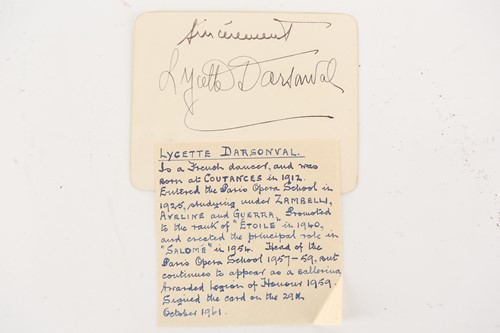 Sincèrement
Lycette Darsonval
LYCETTE DARSONVAL.
Is a French dancer, and was
born at COUTANCES in 1912.
Entered the Paris Opera School in
1925, studying under ZAMBELLI,
AVELINE and GUERRA, Promoted
to the rank of "ÉTOILE" in 1940,
and created the principal role in
"SALOMÉ" in 1954. Head of the
Paris Opera School 1957-59, but
continues to appear as a ballerina
Awarded Legion of Honour 1959.
Signed the card on the 29th
October 1961.